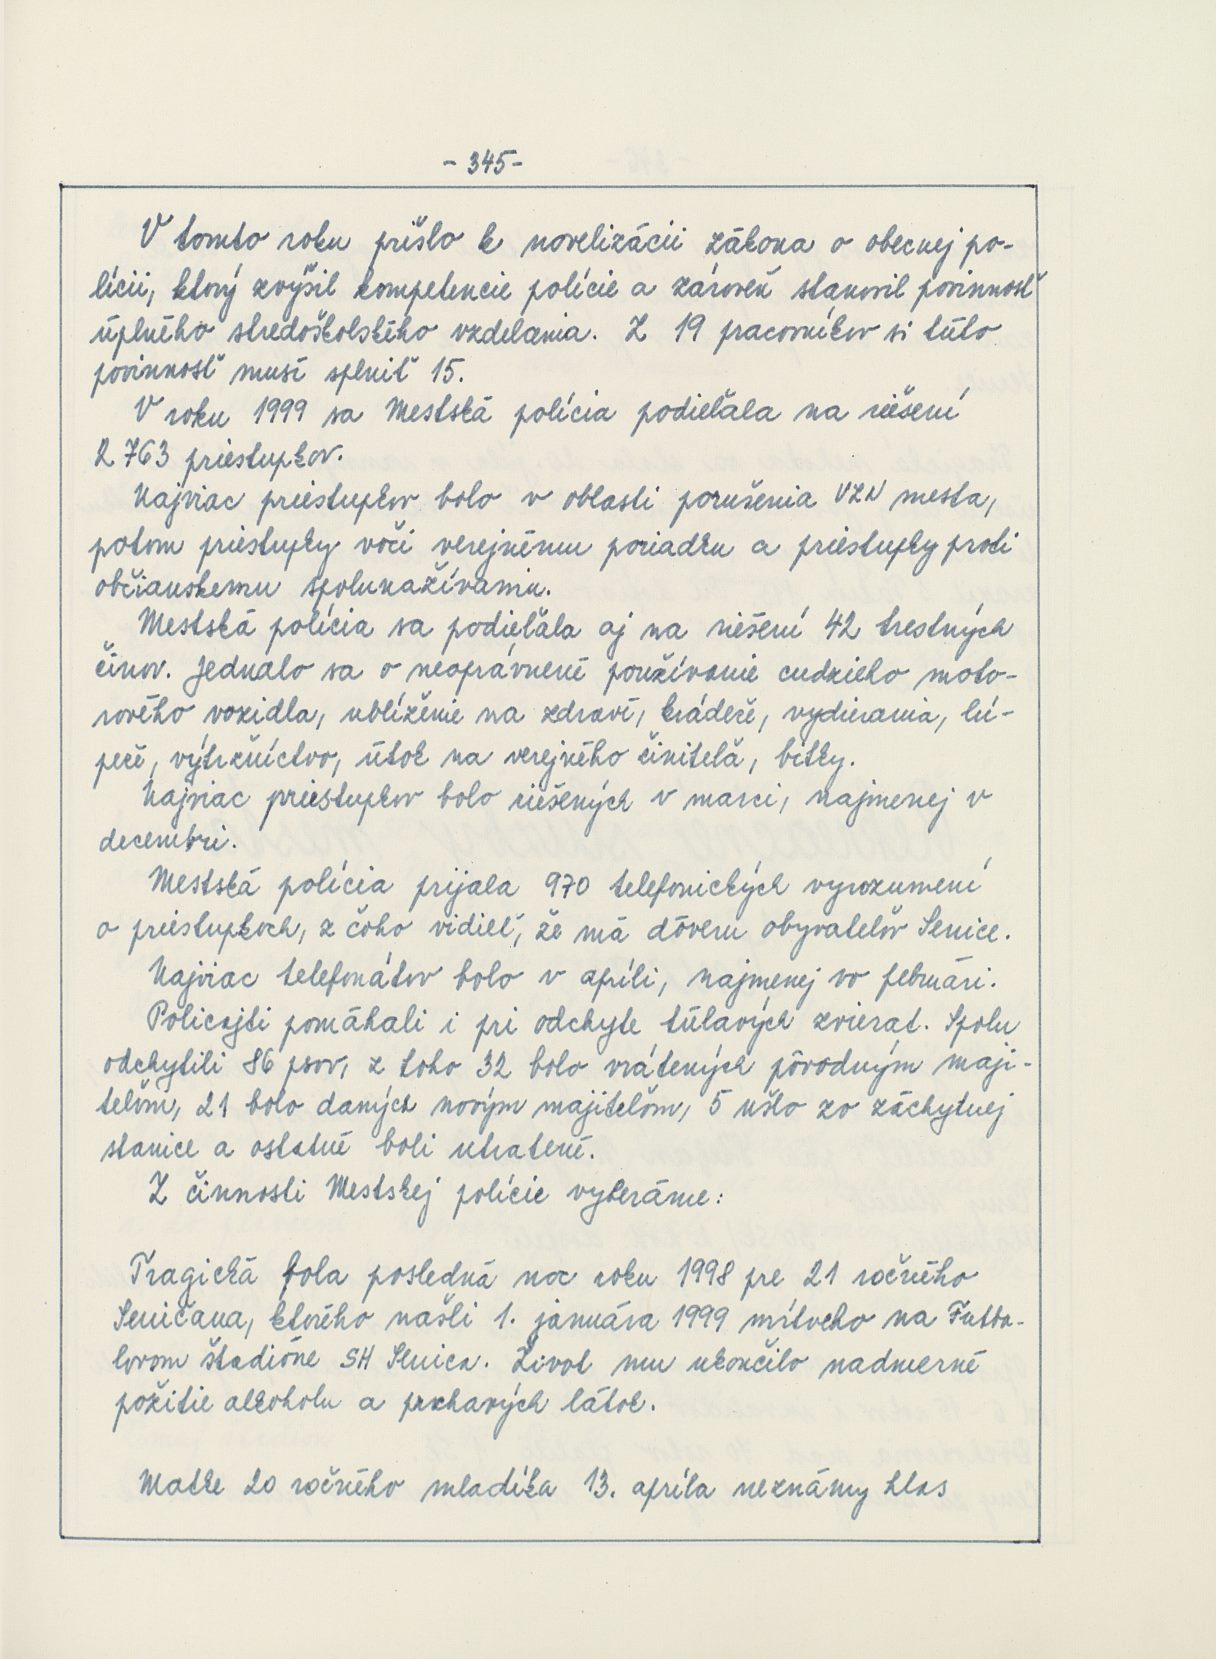 - 345 -
V tomto roku prišlo k novelizácii zákona o obecnej po-
lícii, ktorý zvýšil kompetencie polície a zároveň stanovil povinnosť
úplného stredoškolského vzdelania. Z 19 pracovníkov si túto
povinnosť musí splniť 15.
V roku 1999 sa Mestská polícia podieľala na riešení
2 763 priestupkov.
Najviac priestupkov bolo v oblasti porušenia VZN mesta,
potom priestupky voči verejnému poriadku a priestupky proti
občianskemu spolunažívaniu.
Mestská polícia sa podieľala aj na riešení 42 trestných
činov. Jednalo sa o neoprávnené používanie cudzieho moto-
rového vozidla, ublíženie na zdraví, krádeže, vydierania, lú-
peže, výtržníctvo, útok na verejného činiteľa, bitky.
Najviac priestupkov bolo riešených v marci, najmenej v
decembri.
Mestská polícia prijala 970 telefonických vyrozumení
o priestupkoch, z čoho vidieť, že má dôveru obyvateľov Senice.
Najviac telefonátov bolo v apríli, najmenej vo februári.
Policajti pomáhali i pri odchyte túlavých zvierat. Spolu
odchytili 86 psov, z toho 32 bolo vrátených pôvodným maji-
teľom, 21 bolo daných novým majiteľom, 5 ušlo zo záchytnej
stanice a ostatné boli utratené.
Z činnosti Mestskej polície vyberáme:
Tragická bola posledná noc roku 1998 pre 21 ročného
Seničana, ktorého našli 1. januára 1999 mŕtveho na Futba-
lovom štadióne SH Senica. Život mu ukončilo nadmerné
požitie alkoholu a prchavých látok.
Matke 20 ročného mladíka 13. apríla neznámy hlas